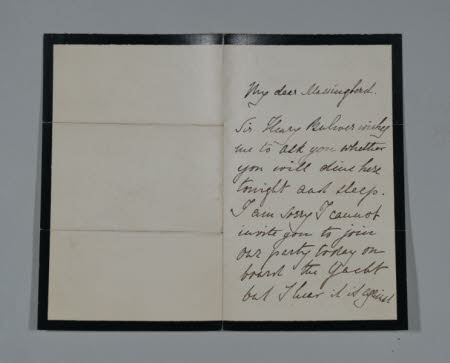 My dear Massingberd.
Sir Henry Bulwer wishes
me to ask you whether
you will dine here
tonight and sleep.
I am sorry I cannot
invite you to join
our party today on
board the Yacht
but I hear it is against